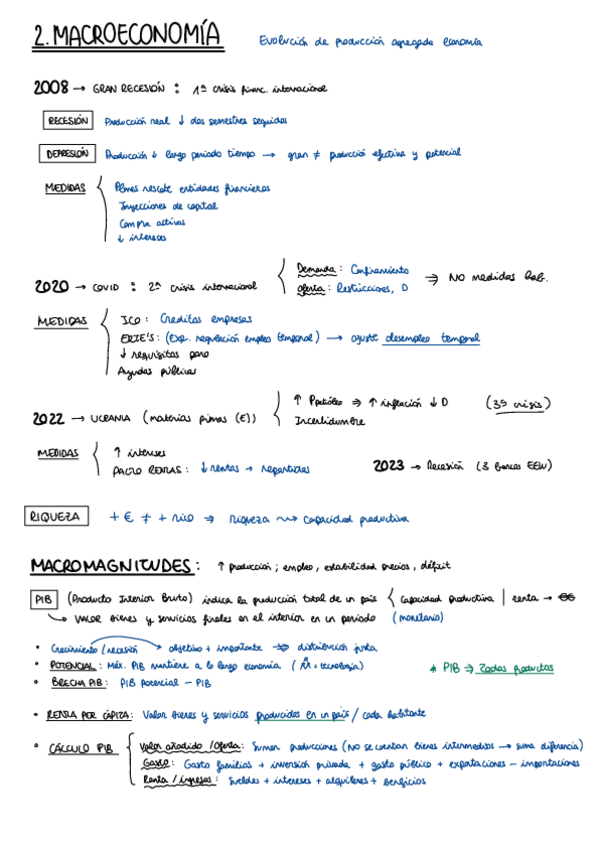 2. MACROECONOMÍA Evolución de producción agregada economía
2008 → GRAN RECESIÓN : 1ª crisis financ. internacional
RECESIÓN Producción real ↓ dos semestres seguidos
DEPRESIÓN Producción ↓ largo periodo tiempo → gran ≠ producción efectiva y potencial
MEDIDAS { Planes rescate entidades financieras
Inyecciones de capital
Compra activos
↓ intereses
2020 → COVID : 2ª crisis internacional { Demanda : Confinamiento
Oferta : Restricciones, D ⇒ NO medidas hab.
MEDIDAS { ICO : Creditos empresas
ERTE'S : (Exp. regulación empleo temporal) → ajuste desempleo temporal
↓ requisitos paro
Ayudas públicas
2022 → UCRANIA (materias primas (€)) { ↑ Ppetróleo ⇒ ↑ inflación ↓ D (3ª crisis)
Incertidumbre
MEDIDAS { ↑ intereses
PACTO RENTAS : ↓ rentas → repartidas 2023 → Recesión (3 bancos EEUU)
RIQUEZA + € ≠ + rico ⇒ riqueza ⇝ capacidad productiva
MACROMAGNITUDES : ↑ producción ; empleo, estabilidad precios, déficit
PIB (Producto Interior Bruto) indica la producción total de un país { Capacidad productiva | renta →
↳ valor bienes y servicios finales en el interior en un periodo (monetario)
• Crecimiento / recesión → objetivo + importante ⇏ distribución justa
• POTENCIAL : Máx. PIB mantiene a lo largo economía ( + tecnología) * PIB ⇒ Todos productos
• BRECHA PIB : PIB potencial − PIB
• RENTA PER CÁPITA : Valor bienes y servicios producidos en un país / cada habitante
• CÁLCULO PIB { Valor añadido / Oferta : Suman producciones (No se cuentan bienes intermedios → suma diferencia)
Gasto : Gasto familias + inversión privada + gasto público + exportaciones − importaciones
Renta / ingresos : Sueldos + intereses + alquileres + beneficios